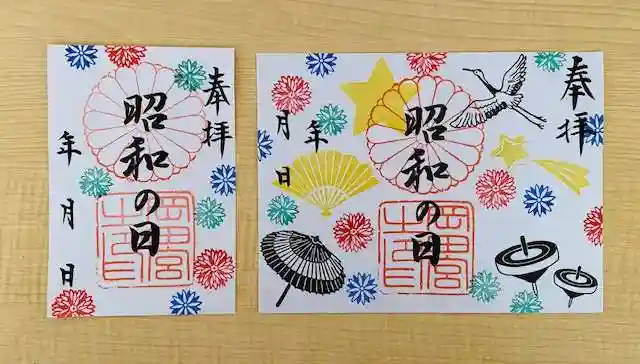 奉拝
昭和の日
年
月
日
奉拝
昭和の日
年
月
日